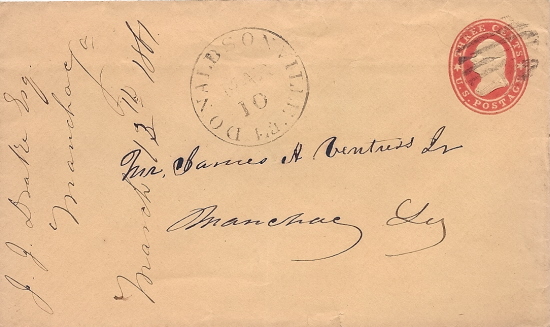 DONALDSONVILLE La
MAR
10
THREE CENTS
U.S. POSTAGE
Mr. James A Ventress Jr
Manchac La
J. J. Drake Esq.
Manchac La
March 13th 1861